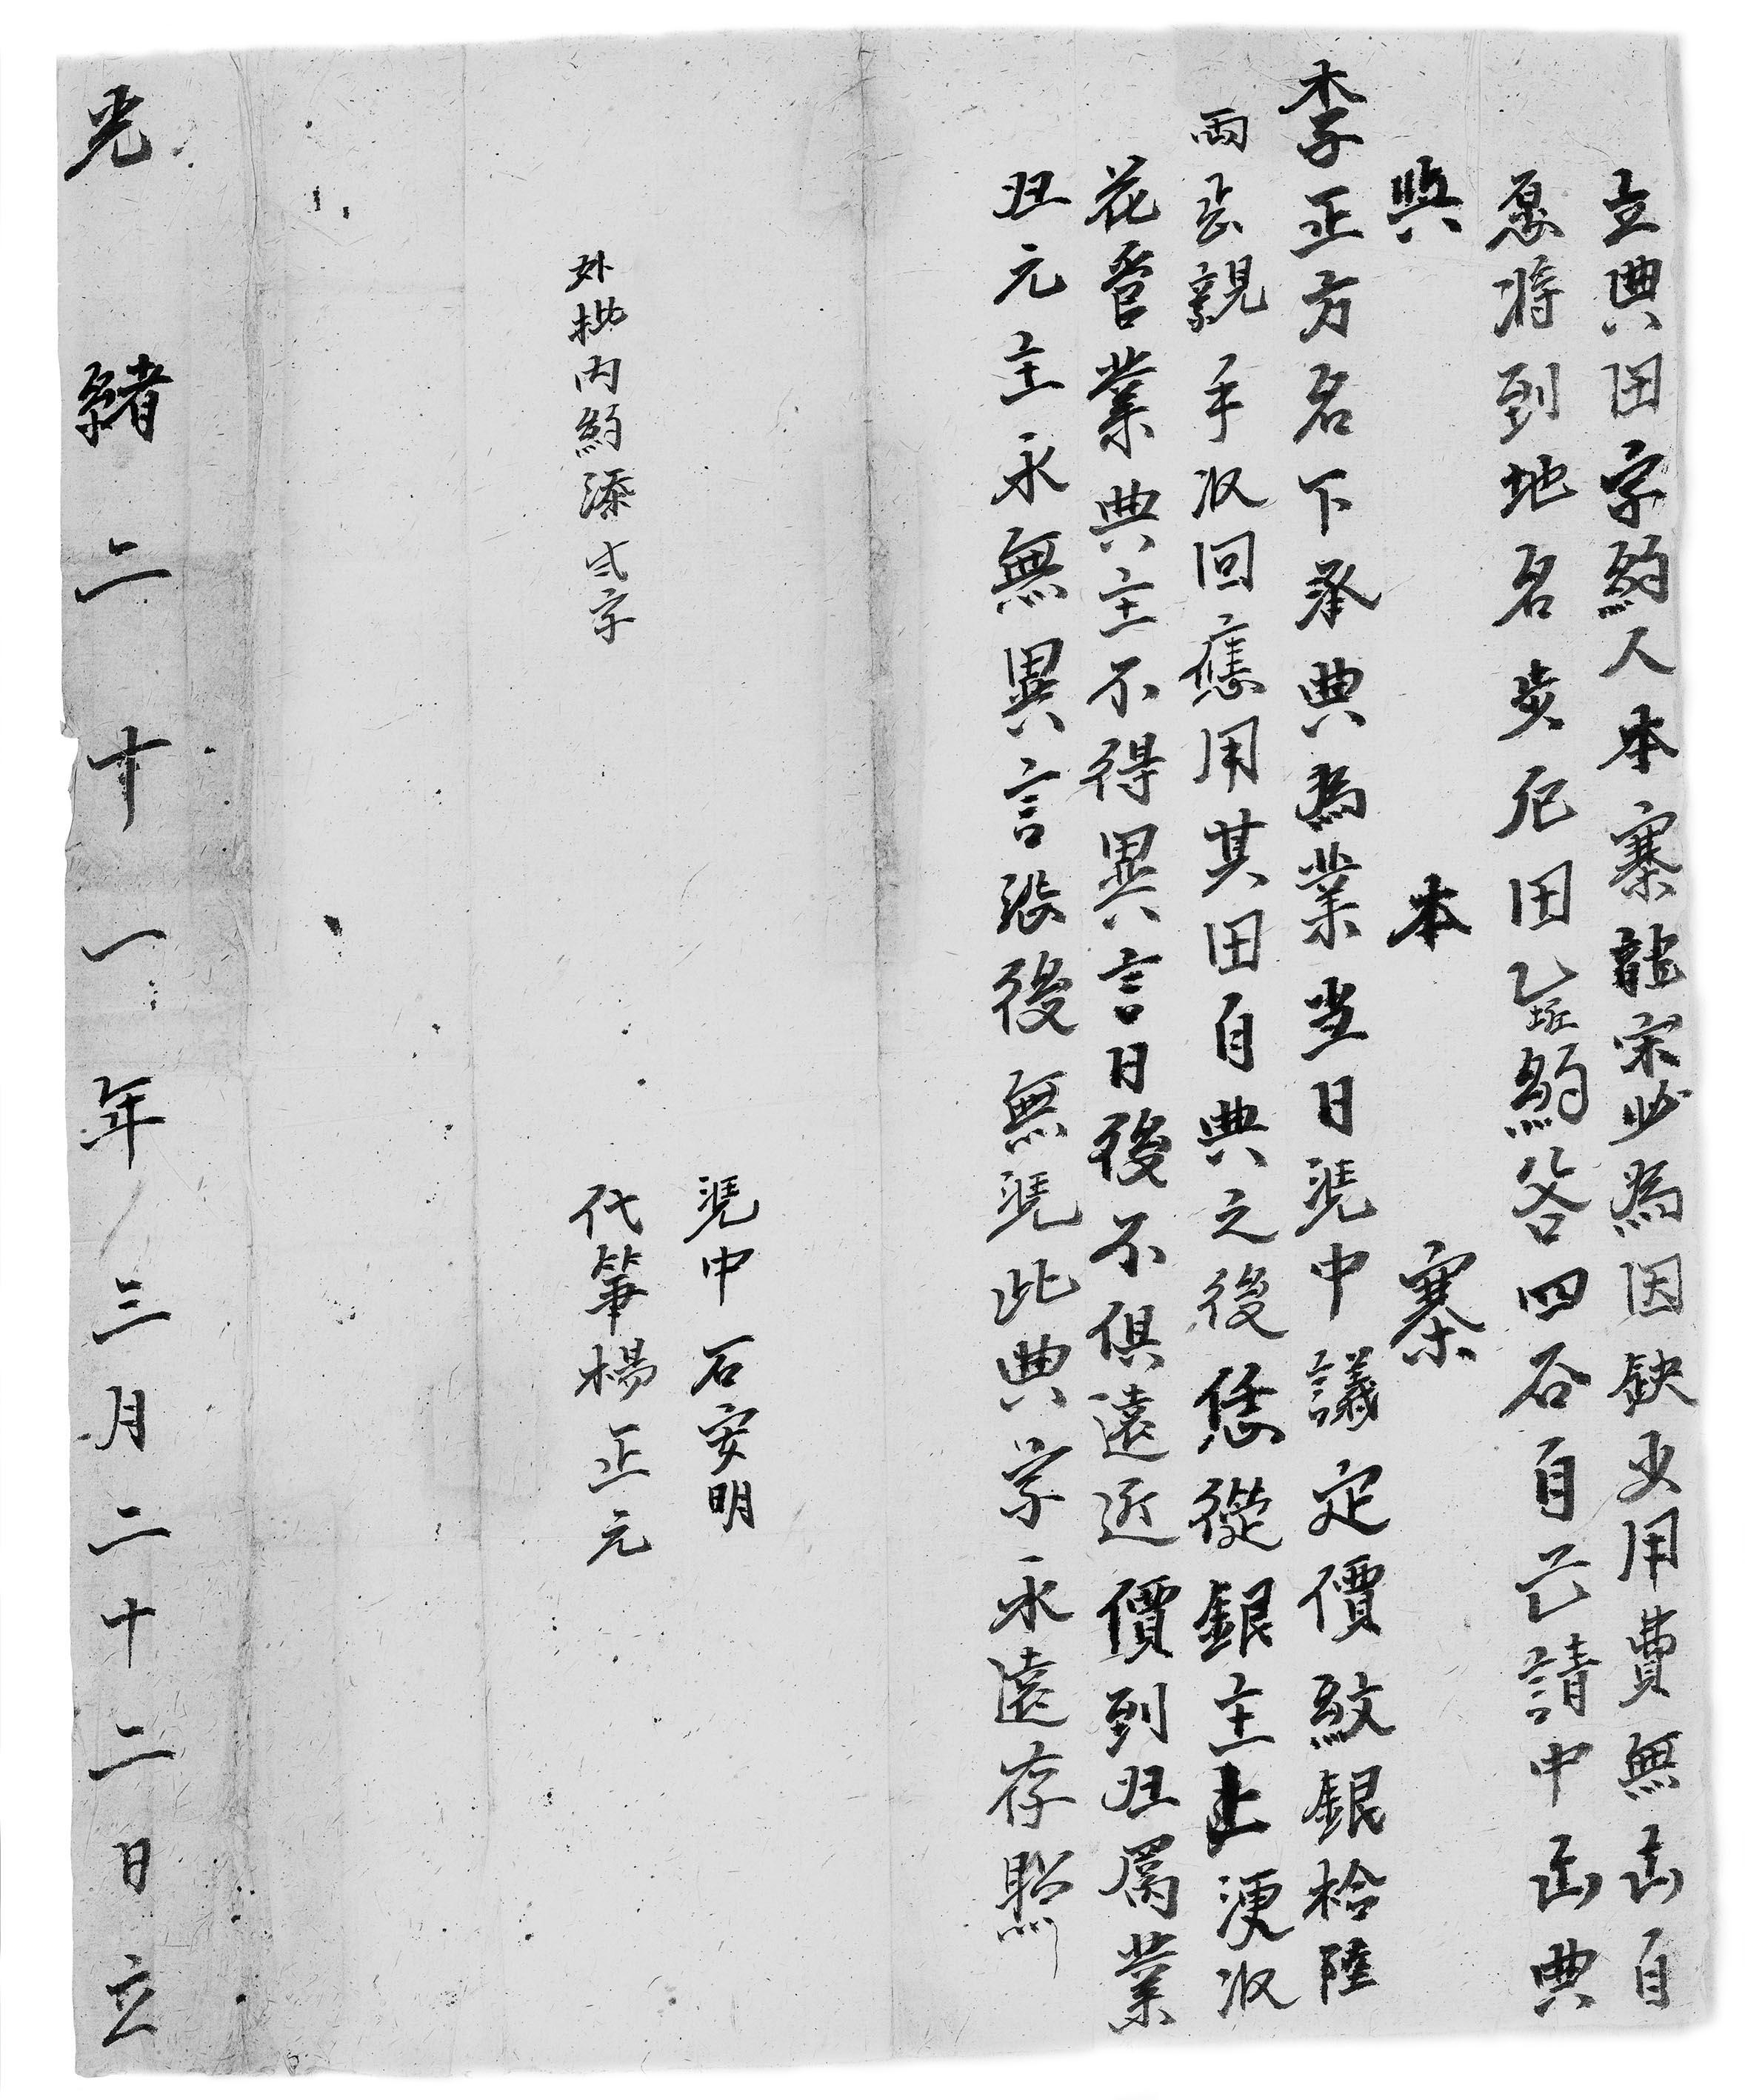 立典田字約人本寨龍宋必為因缺少用費無出自
愿將到地名岁尼田乙坵約谷四石自己請中出典
與 本 寨
李正方名下承典為業当日凴中議定價紋銀拾陸
兩去親手収回應用其田自典之後恁從銀主上更収
花管業典主不得異言日後不俱遠近價到归屬業
归元主永無異言恐後無凴此典字永遠存照
凴中 石安明
代筆楊正元
外批內約添弍字
光緒二十一年三月二十二日立